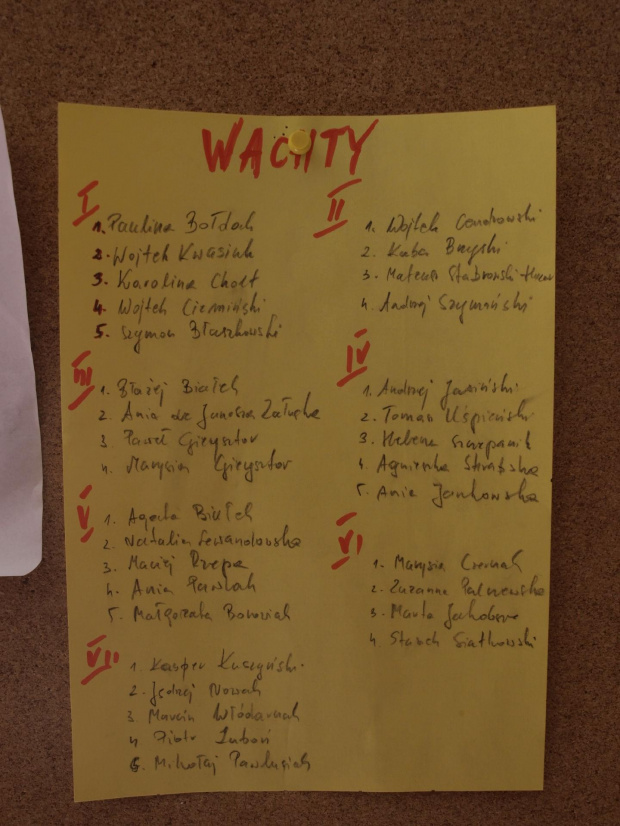 WACHTY
I
1. Paulina Bołdak
2. Wojtek Kwasiuk
3. Karolina Chołt
4. Wojtek Ciermiński
5. Szymon Błaszkowski
II
1. Wojtek
2. Kuba
3. Mateusz
4. Andrzej Szymański
III
1. Błażej Białek
2. Ania de Junosza Załuska
3. Paweł Gieysztor
4. Marysia Gieysztor
IV
1. Andrzej Jasiński
2. Tomasz Uśpieński
3. Helena Szczepanik
4. Agnieszka
5. Ania Jankowska
V
1. Agata Białek
2. Natalia Lewandowska
3. Maciej Rzepa
4. Ania Pawlak
5. Małgorzata Borowiak
VI
1. Marysia Czernak
2. Zuzanna
3. Marta
4. Staszek Siatkowski
VII
1. Kasper Kuczyński
2. Jędrzej Nowak
3. Marcin Włódarczak
4. Piotr Luboń
6. Mikołaj Pawlusiak